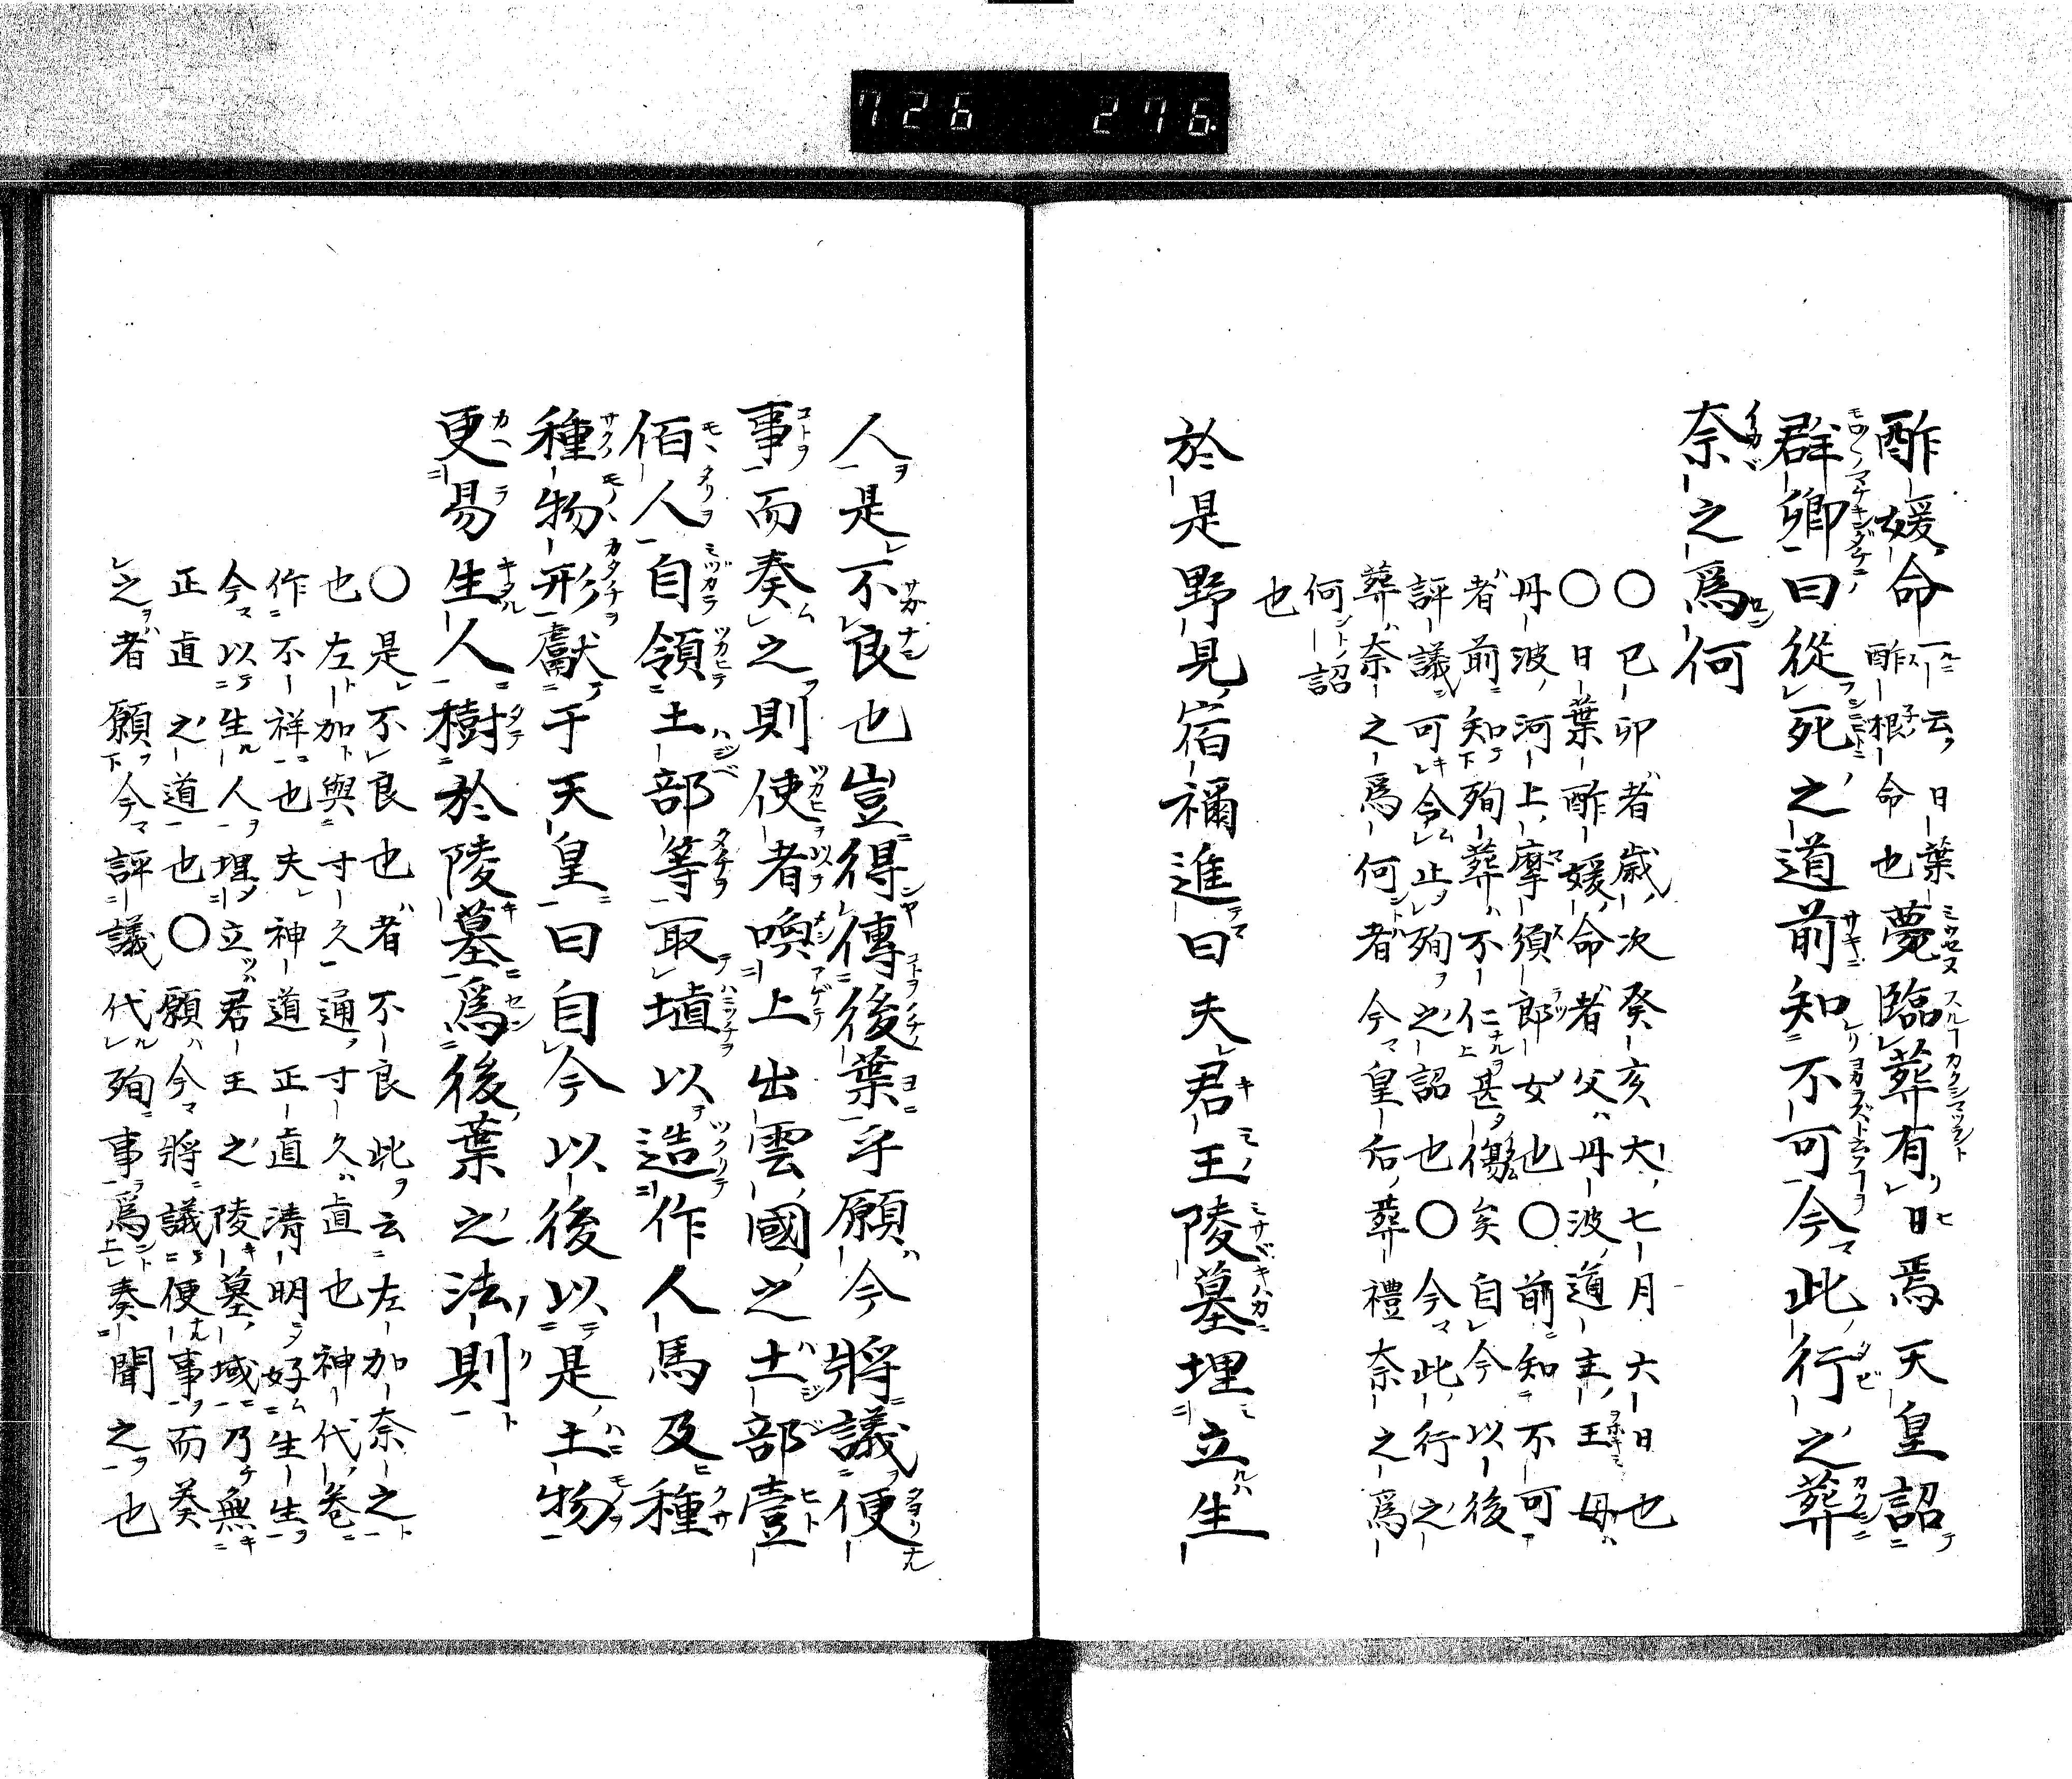 726 276.
酢媛命一云日葉酢根命也薨臨葬有日焉天皇詔
群卿曰從死之道前知不可今此行之葬
奈之爲何
〇己卯者歳次癸亥大七月六日也
〇日葉酢媛命者父丹波道主王母
丹波河上摩須郎女也〇前知不可
者前知殉葬不仁甚傷矣自今以後
評議可令止殉之詔也〇今此行之
葬奈之爲何者今皇后葬禮奈之爲
何詔
也
於是野見宿禰進曰夫君王陵墓埋立生
人是不良也豈得傳後葉乎願今將議便
事而奏之則使者喚上出雲國之土部壹
佰人自領土部等取埴以造作人馬及種
種物形獻于天皇曰自今以後以是土物
更易生人樹於陵墓爲後葉之法則
〇是不良也者不良此云左加奈之
也左加與寸久通寸久直也神代卷
作不祥也夫神道正直清明好生生
今以生人埋立君王之陵墓域乃無
正直之道也〇願今將議便事而奏
之者願今評議代殉事爲奏聞之也